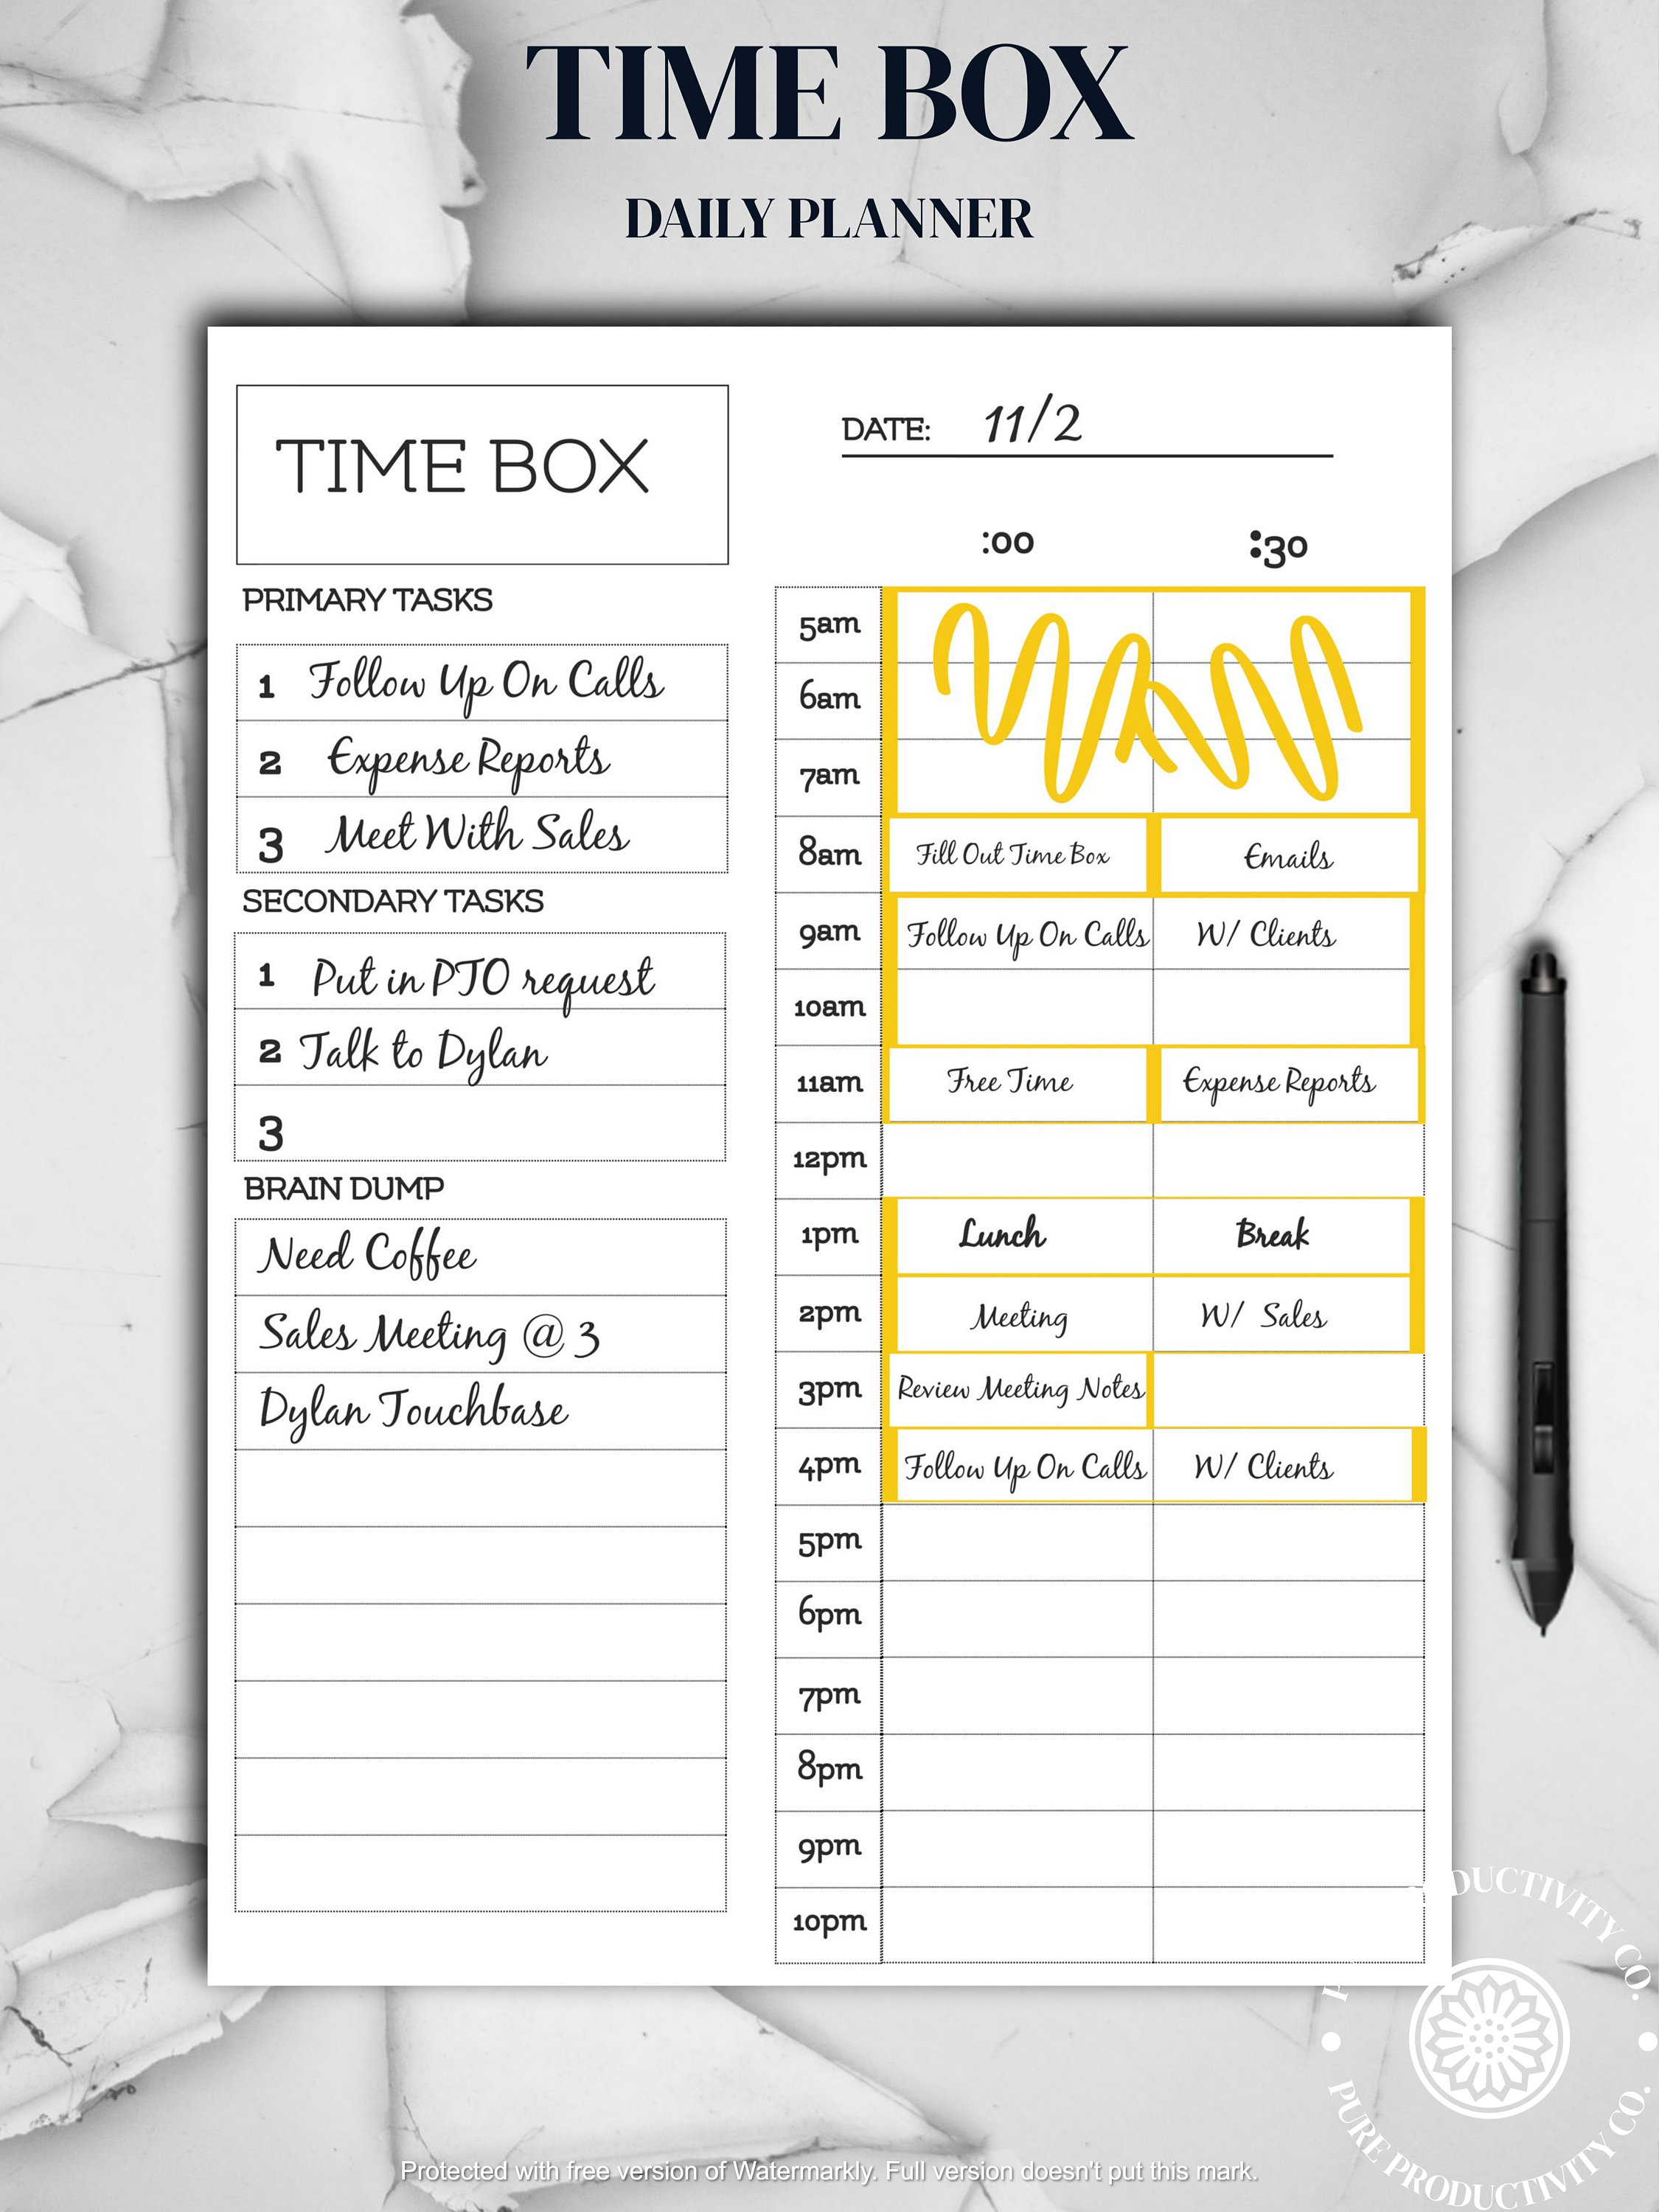 TIME BOX
DAILY PLANNER
TIME BOX
DATE: 11/2
:00 :30
PRIMARY TASKS
1 Follow Up On Calls
2 Expense Reports
3 Meet With Sales
SECONDARY TASKS
1 Put in PTO request
2 Talk to Dylan
3
BRAIN DUMP
Need Coffee
Sales Meeting @ 3
Dylan Touchbase
5am
6am
7am
8am Fill Out Time Box Emails
9am Follow Up On Calls W/ Clients
10am
11am Free Time Expense Reports
12pm
1pm Lunch Break
2pm Meeting W/ Sales
3pm Review Meeting Notes
4pm Follow Up On Calls W/ Clients
5pm
6pm
7pm
8pm
9pm
10pm
DUCTIVITY CO.
PURE PRODUCTIVITY CO.
Protected with free version of Watermarkly. Full version doesn't put this mark.